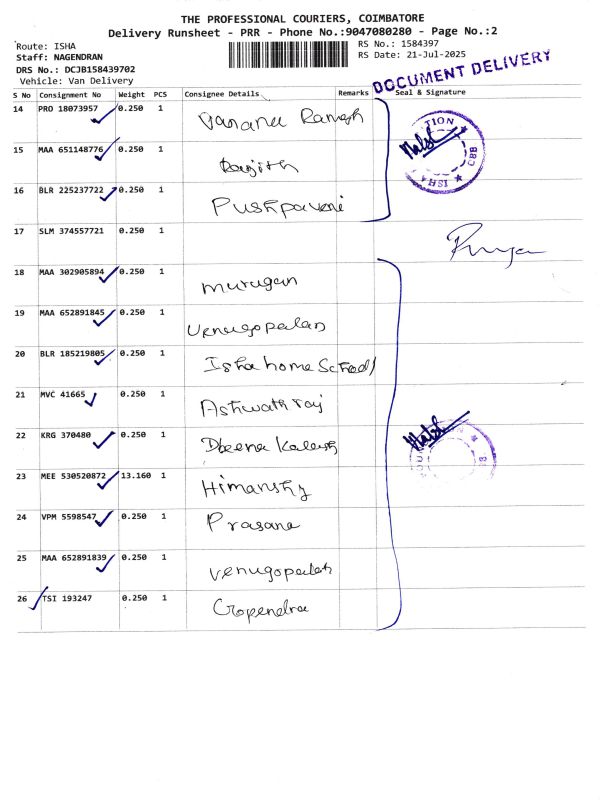 THE PROFESSIONAL COURIERS, COIMBATORE
Delivery Runsheet - PRR - Phone No.:9047080280 - Page No.:2
Route: ISHA
RS No.: 1584397
Staff: NAGENDRAN
RS Date: 21-Jul-2025
DRS No.: DCJB158439702
Vehicle: Van Delivery
DOCUMENT DELIVERY
S No Consignment No Weight PCS Consignee Details Remarks Seal & Signature
14 PRO 18073957 0.250 1 Ramesh
15 MAA 651148776 0.250 1 Ranjith
16 BLR 225237722 0.250 1 Pushpaveni
TION CBB ISHA
17 SLM 374557721 0.250 1
18 MAA 302905894 0.250 1 Murugan
19 MAA 652891845 0.250 1 Venugopalan
20 BLR 185219805 0.250 1 Isha home School
21 MVC 41665 0.250 1 Ashwath raj
22 KRG 370480 0.250 1 Dheena
23 MEE 530520872 13.160 1 Himanshy
24 VPM 5598547 0.250 1 Prasana
25 MAA 652891839 0.250 1 Venugopalan
26 TSI 193247 0.250 1 Gopendra